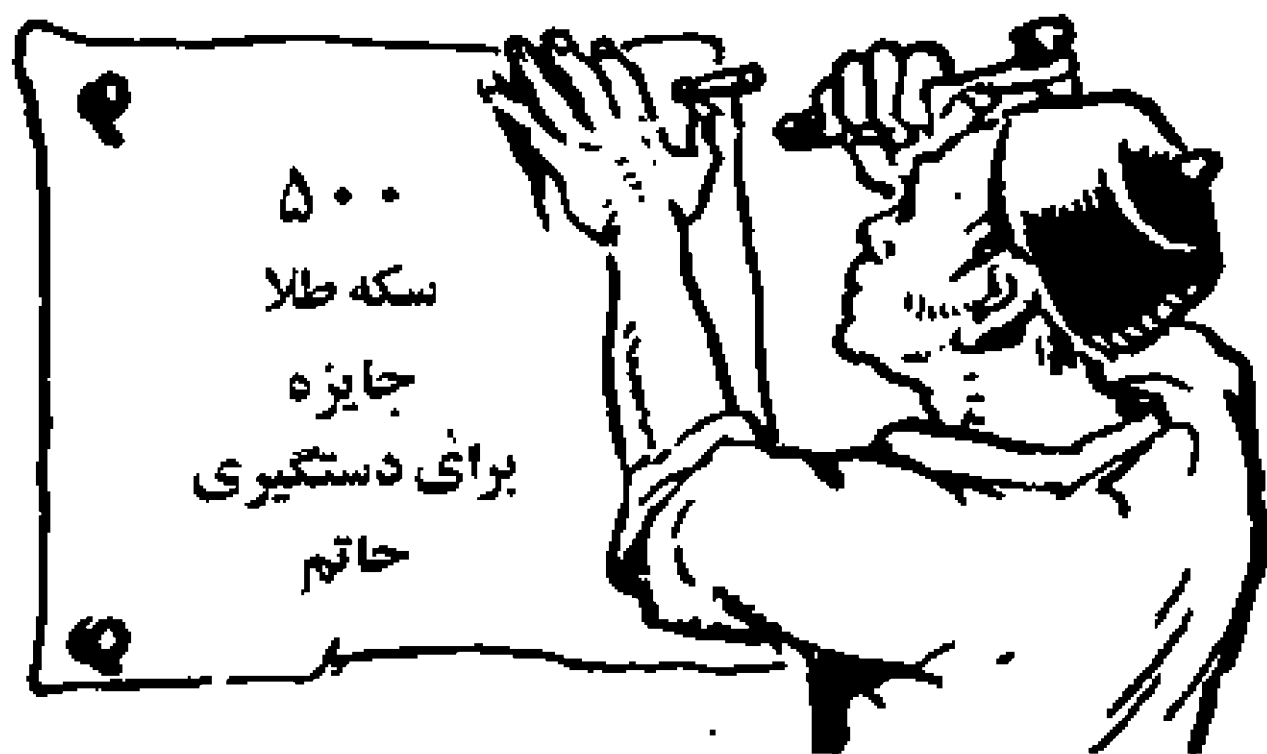 ۵۰۰
سکه طلا
جایزه
برای دستگیری
حاتم